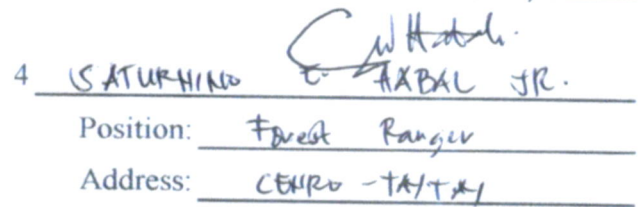 4 SATURNINO E. JR.
Position: Forest Ranger
Address: CENRO - TAYTAY